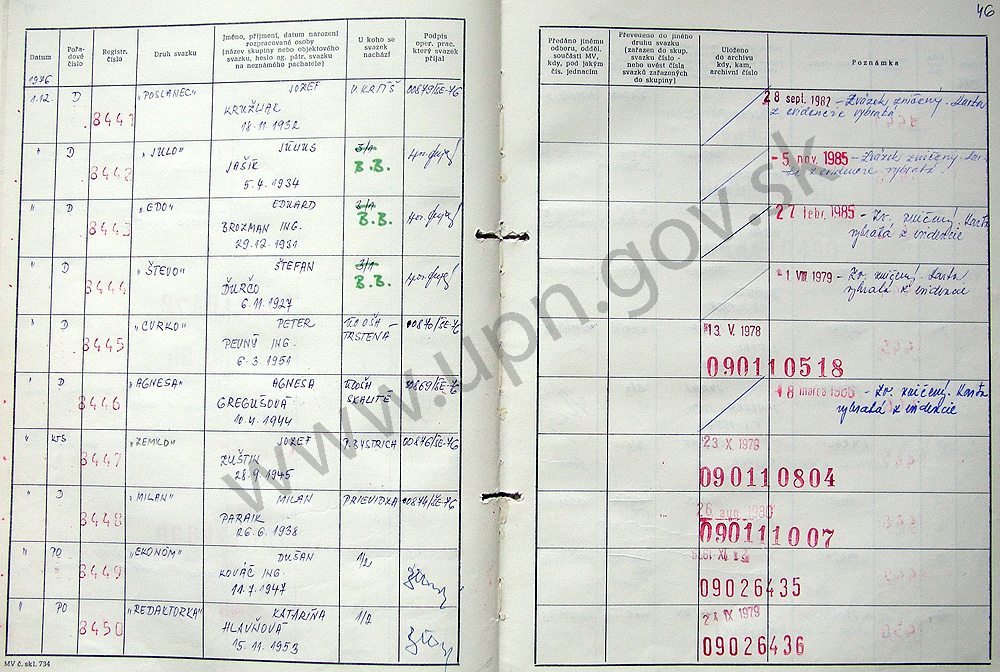 46
Datum
Pořa-
dové
číslo
Registr.
číslo
Druh svazku
Jméno, příjmení, datum narození
rozpracované osoby
(název skupiny nebo objektového
svazku, heslo ag. pátr. svazku
na neznámého pachatele)
U koho se
svazek
nachází
Podpis
oper. prac.
který svazek
přijal
Předáno jinému
odboru, odděl.
součásti MV,
kdy, pod jakým
čís. jednacím
Převedeno do jiného
druhu svazku
(zařazen do skup.
svazku číslo -
nebo uvést čísla
svazků zařazených
do skupiny)
Uloženo
do archivu
kdy, kam,
archivní číslo
Poznámka
1976
1.12. D 8441 "POSLANEC" JOZEF
KRUŽLIAK
18.11.1932
V. KRTÍŠ 00879/SE-76
28 sept. 1982 - Zväzok zničený. Karta
z evidencie vybratá.
" D 8442 "JULO" JÚLIUS
JAŠÍK
5.4.1934
3/1
B.B.
- 5 nov. 1985 - Zväzok zničený. Kar-
ta z evidencie vybratá.
" D 8443 "EDO" EDUARD
BROZMAN ING.
29.12.1931
3/1
B.B.
27 febr. 1985 - Zv. zničený. Karta
vybratá z evidencie
" D 8444 "ŠTEVO" ŠTEFAN
ĎURČO
6.11.1927
3/1
B.B.
1 VIII 1979 - Zv. zničený. Karta
vybratá z evidencie
" D 8445 "CURKO" PETER
PEVNÝ ING.
6.3.1951
OOŠH -
TRSTENÁ
00876/SE-76
13. V. 1978
090110518
" D 8446 "AGNESA" AGNESA
GREGUŠOVÁ
10.4.1944
OOŠH
SKALITÉ
00869/SE-76
18 marca 1986 - Zv. zničený. Karta
vybratá z evidencie
" KTS 8447 "ZEMKO" JOZEF
ZUŠTIN
28.9.1945
P. BYSTRICA 00876/SE-76
23 X 1979
090110804
" D 8448 "MILAN" MILAN
PARAIK
26.6.1938
PRIEVIDZA 00874/SE-76
26 aug. 1980
090111007
" PO 8449 "EKONÓM" DUŠAN
KOVÁČ ING.
11.7.1947
1/2
09026435
" PO 8450 "REDAKTORKA" KATARÍNA
HLAVŇOVÁ
15.11.1953
1/2
24 IX 1979
09026436
MV č. skl. 734
www.upn.gov.sk